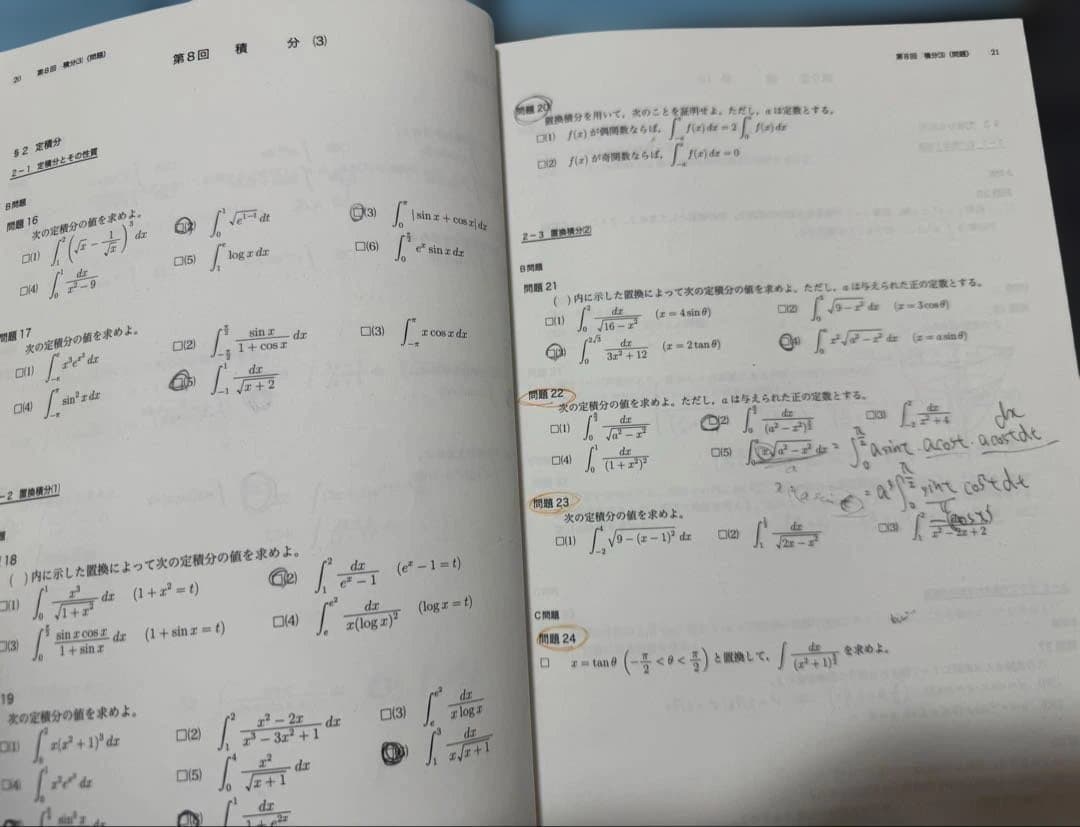 20 第8回 積分(3)(問題)
第8回 積 分 (3)
§2 定積分
2-1 定積分とその性質
B問題
問題16
次の定積分の値を求めよ。
□(1) ∫₁² (√x − 1/√x)³ dx
□(2) ∫₀¹ √(e^(1−t)) dt
□(3) ∫₀^π |sin x + cos x| dx
□(4) ∫₀¹ dx/(x²−9)
□(5) ∫₁^e log x dx
□(6) ∫₀^(π/2) eˣ sin x dx
問題17
次の定積分の値を求めよ。
□(1)
□(2) ∫_(−π/2)^(π/2) sin x/(1+cos x) dx
□(3) ∫_(−π)^π x cos x dx
□(4) ∫_(−π)^π sin² x dx
□(5) ∫_(−1)^1 dx/√(x+2)
-2 置換積分(1)
18
( )内に示した置換によって次の定積分の値を求めよ。
□(1) ∫₀¹ x³/√(1+x²) dx (1+x²=t)
□(2) ∫₁² dx/(eˣ−1) (eˣ−1=t)
□(3) ∫₀^(π/2) sin x cos x/(1+sin x) dx (1+sin x=t)
□(4) ∫_e^(e²) dx/(x(log x)²) (log x=t)
19
次の定積分の値を求めよ。
□(1) x(x²+1)³ dx
□(2) ∫₁² (x²−2x)/(x³−3x²+1) dx
□(3) ∫_e^(e²) dx/(x log x)
□(4)
□(5) ∫₀⁴ x²/√(x+1) dx
∫₁³ dx/(x√(x+1))
sin³ x dx
∫ dx/(1+e^(2x))
第8回 積分(3)(問題) 21
問題20
置換積分を用いて,次のことを証明せよ。ただし,aは定数とする。
□(1) f(x)が偶関数ならば,∫_(−a)^a f(x)dx=2∫₀^a f(x)dx
□(2) f(x)が奇関数ならば,∫_(−a)^a f(x)dx=0
2-3 置換積分(2)
B問題
問題21
( )内に示した置換によって次の定積分の値を求めよ。ただし,aは与えられた正の定数とする。
□(1) ∫₀² dx/√(16−x²) (x=4sinθ)
□(2) √(9−x²) dx (x=3cosθ)
□(3) ∫₀^(2√3) dx/(3x²+12) (x=2tanθ)
□(4) ∫₀^a x²√(a²−x²) dx (x=asinθ)
問題22
次の定積分の値を求めよ。ただし,aは与えられた正の定数とする。
□(1) dx/√(a²−x²)
□(2) dx/(a²−x²)
□(3) ∫_(−2)^2 dx/(x²+4)
dx
□(4) ∫₀¹ dx/(1+x²)²
□(5) x√(a²−x²) dx = ∫₀^(π/2) a sin t · a cos t · a cos t dt
= a³∫₀^(π/2) sin t cos² t dt
問題23
次の定積分の値を求めよ。
□(1) ∫_(−2)^4 √(9−(x−1)²) dx
□(2) dx/√(2x−x²)
□(3) ∫₁² /(x²−2x+2)
C問題
問題24
□ x=tanθ (−π/2<θ<π/2) と置換して,∫ dx/(x²+1) を求めよ。